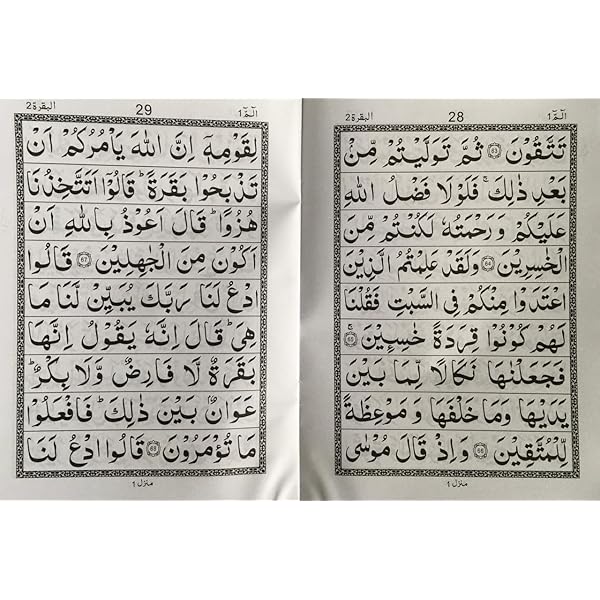 الٓمّٓ ١
28
البقرة ٢
تَتَّقُوْنَ ﴿63﴾ ثُمَّ تَوَلَّيْتُمْ مِّنْۢ
بَعْدِ ذٰلِكَ ۚ فَلَوْلَا فَضْلُ اللّٰهِ
عَلَيْكُمْ وَرَحْمَتُهٗ لَكُنْتُمْ مِّنَ
الْخٰسِرِيْنَ ﴿64﴾ وَلَقَدْ عَلِمْتُمُ الَّذِيْنَ
اعْتَدَوْا مِنْكُمْ فِى السَّبْتِ فَقُلْنَا
لَهُمْ كُوْنُوْا قِرَدَةً خٰسِـِٕيْنَ ۚ ﴿65﴾
فَجَعَلْنٰهَا نَكَالًا لِّمَا بَيْنَ
يَدَيْهَا وَمَا خَلْفَهَا وَمَوْعِظَةً
لِّلْمُتَّقِيْنَ ﴿66﴾ وَاِذْ قَالَ مُوْسٰى
منزل ١
الٓمّٓ ١
29
البقرة ٢
لِقَوْمِهٖۤ اِنَّ اللّٰهَ يَاْمُرُكُمْ اَنْ
تَذْبَحُوْا بَقَرَةً ؕ قَالُوْۤا اَتَتَّخِذُنَا
هُزُوًا ؕ قَالَ اَعُوْذُ بِاللّٰهِ اَنْ
اَكُوْنَ مِنَ الْجٰهِلِيْنَ ﴿67﴾ قَالُوا
ادْعُ لَنَا رَبَّكَ يُبَيِّنْ لَّنَا مَا
هِىَ ؕ قَالَ اِنَّهٗ يَقُوْلُ اِنَّهَا
بَقَرَةٌ لَّا فَارِضٌ وَّلَا بِكْرٌ ؕ
عَوَانٌۢ بَيْنَ ذٰلِكَ ؕ فَافْعَلُوْا
مَا تُؤْمَرُوْنَ ﴿68﴾ قَالُوا ادْعُ لَنَا
منزل ١